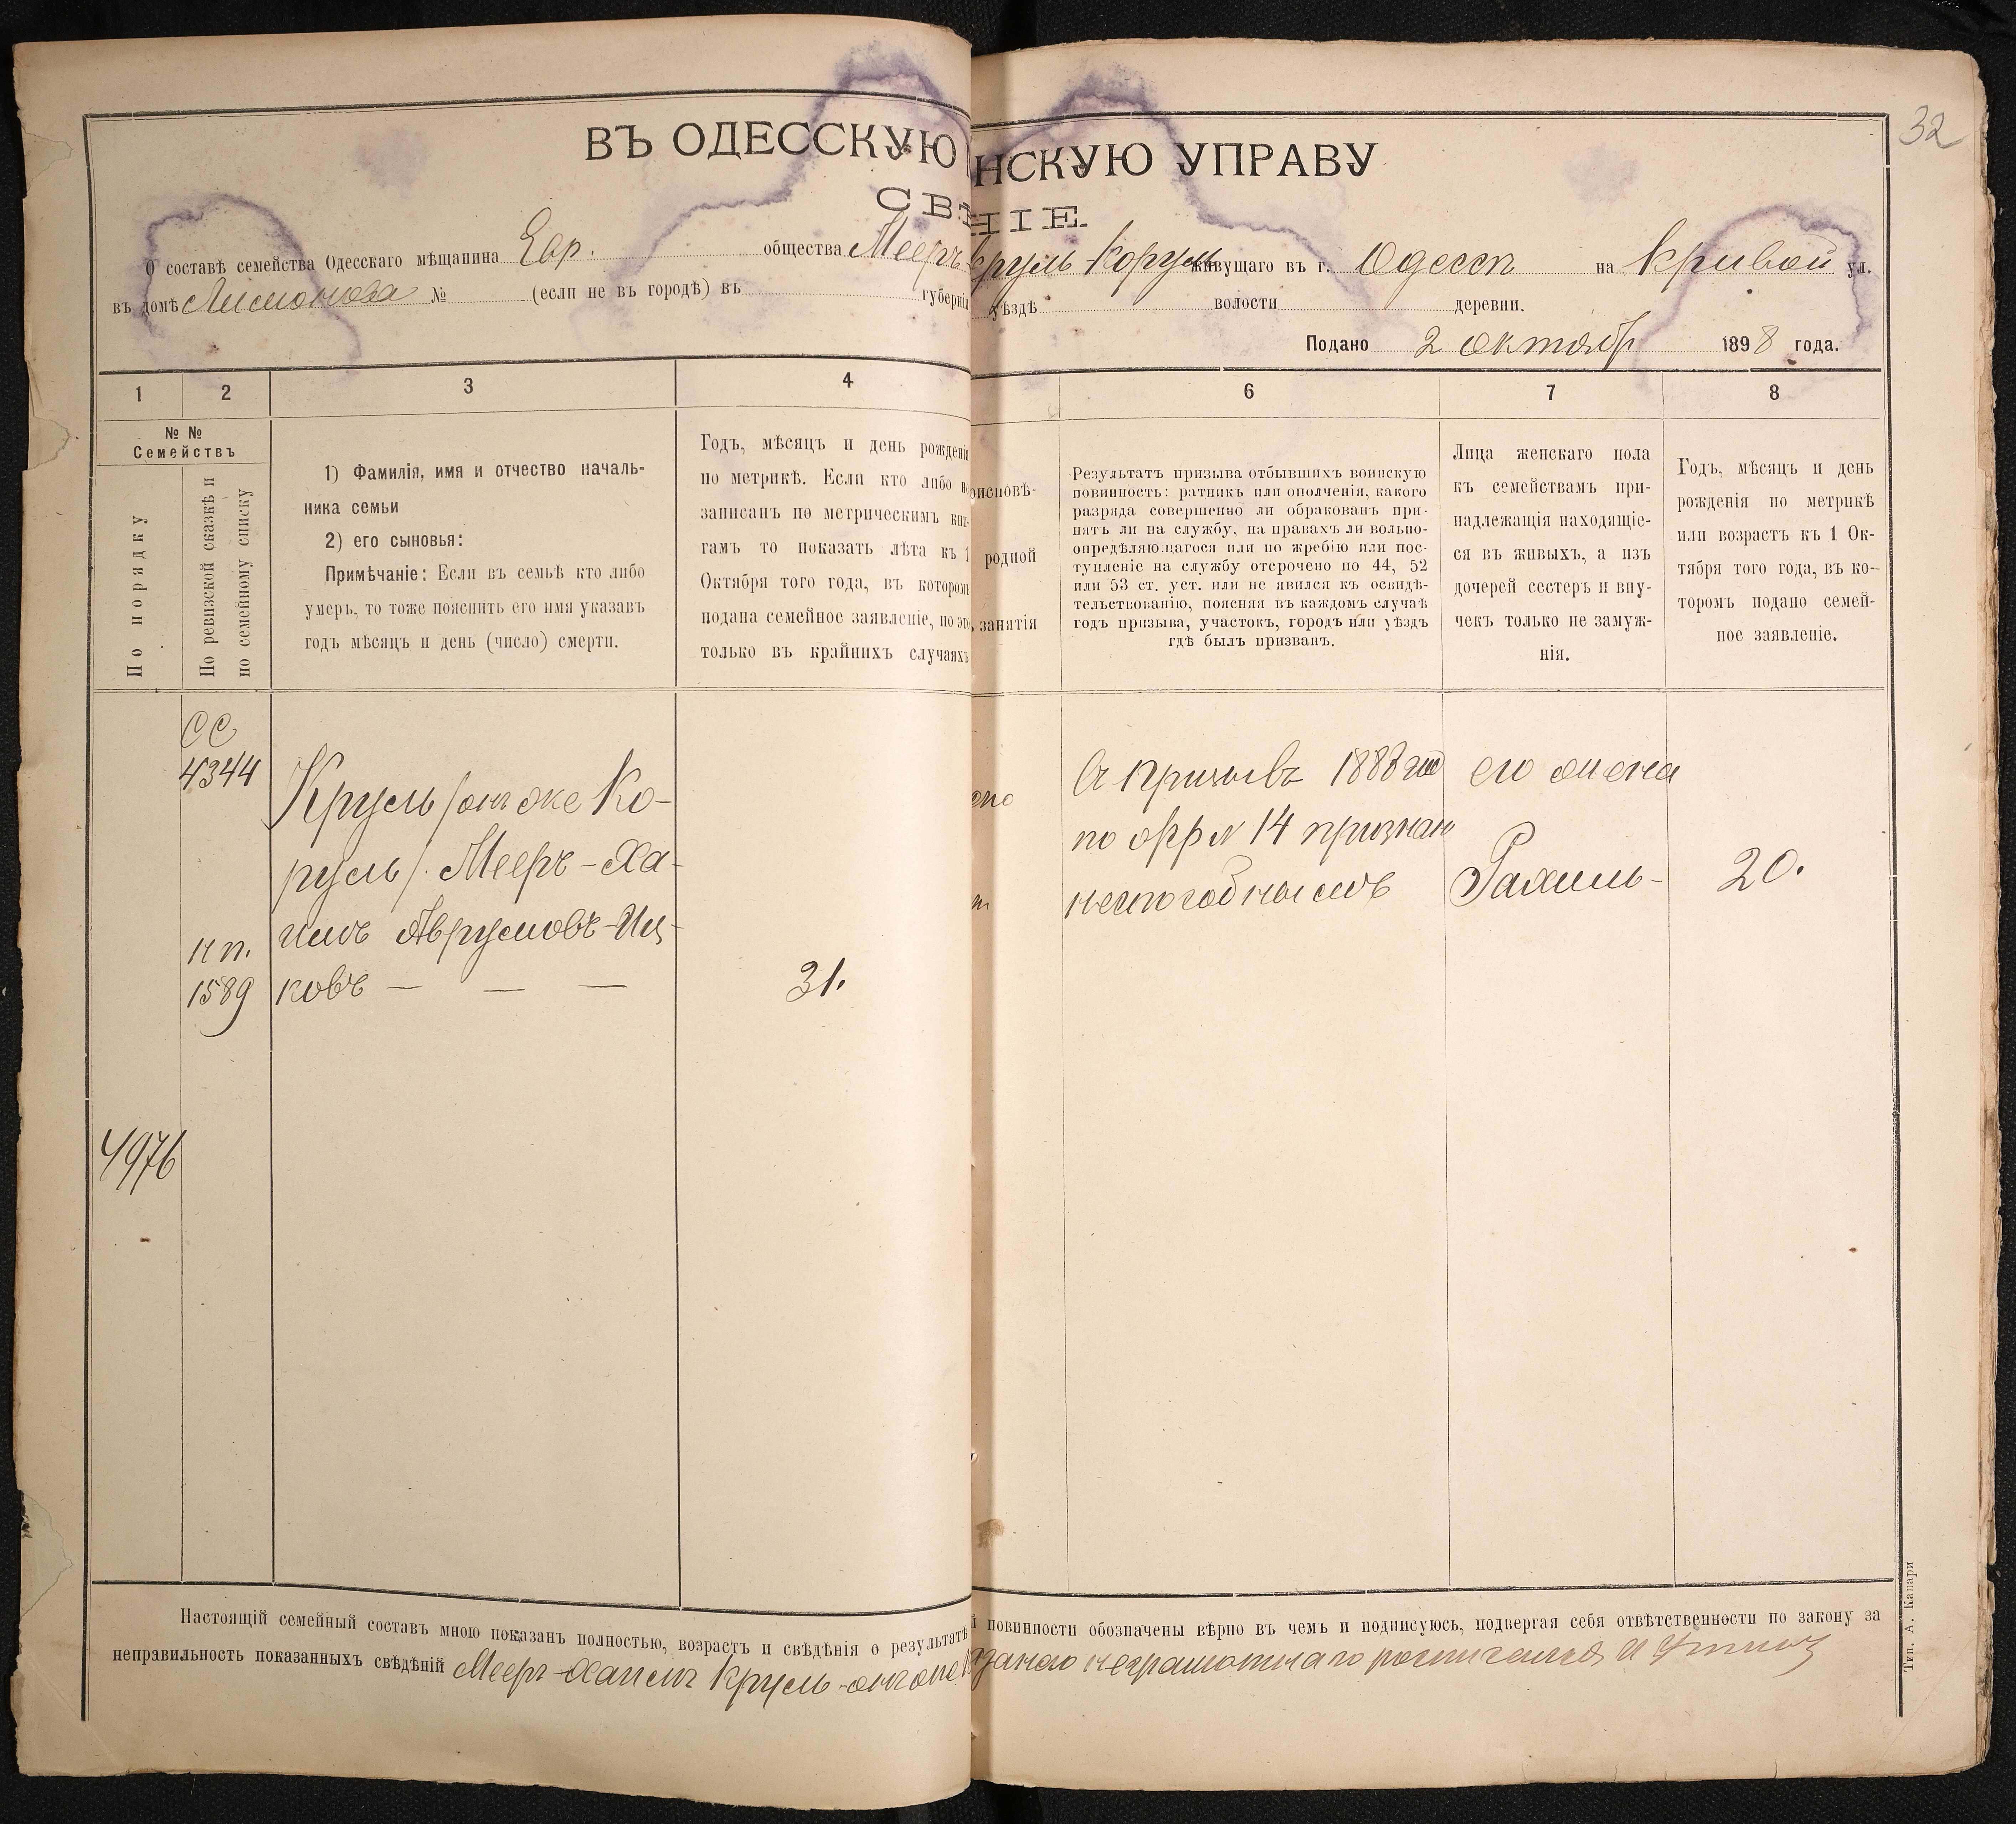 32
ВЪ ОДЕССКУЮ
НСКУЮ УПРАВУ
СВ
НІЕ.
О составѣ семейства Одесскаго мѣщанина Евр. общества Мееръ Круль-Коруль живущаго въ г. Одессѣ на Кривой ул.
въ домѣ № (если не въ городѣ) въ губерніи уѣздѣ волости деревни.
Подано 2 октябр 1898 года.
1 2 3 4 6 7 8
№ №
Семействъ
По порядку
По ревизской сказкѣ и
по семейному списку
1) Фамилія, имя и отчество началь-
ника семьи
2) его сыновья:
Примѣчаніе: Если въ семьѣ кто либо
умеръ, то тоже пояснить его имя указавъ
годъ мѣсяцъ и день (число) смерти.
Годъ, мѣсяцъ и день рожденія
по метрикѣ. Если кто либо не
записанъ по метрическимъ кни-
гамъ то показать лѣта къ 1
Октября того года, въ которомъ
подана семейное заявленіе, но это
только въ крайнихъ случаяхъ
оисповѣ-
родной
занятія
Результатъ призыва отбывшихъ воинскую
повинность: ратникъ или ополченія, какого
разряда совершенно ли обракованъ при-
нятъ ли на службу, на правахъ ли вольно-
опредѣляющагося или по жребію или пос-
тупленіе на службу отсрочено по 44, 52
или 53 ст. уст. или не явился къ освидѣ-
тельствованію, поясняя въ каждомъ случаѣ
годъ призыва, участокъ, городъ или уѣздъ
гдѣ былъ призванъ.
Лица женскаго пола
къ семействамъ при-
надлежащія находящіе-
ся въ живыхъ, а изъ
дочерей сестеръ и вну-
чекъ только не замуж-
нія.
Годъ, мѣсяцъ и день
рожденія по метрикѣ
или возрастъ къ 1 Ок-
тября того года, въ ко-
торомъ подано семей-
ное заявленіе.
СС
4344
нп.
1589
4976
Круль /онъ же Ко-
руль/. Мееръ-Ха-
имъ Аврумовъ-Иц-
ковъ — — —
31.
Въ призывъ 1888 год
по №14 признан
неспособнымъ
его жена
Рахиль-
20.
Настоящій семейный составъ мною показанъ полностью, возрастъ и свѣдѣнія о результатѣ
й повинности обозначены вѣрно въ чемъ и подписуюсь, подвергая себя отвѣтственности по закону за
неправильность показанныхъ свѣдѣній Мееръ-Хаимъ Круль-онъ же неграмотнаго росписался
Тип. А. Капари